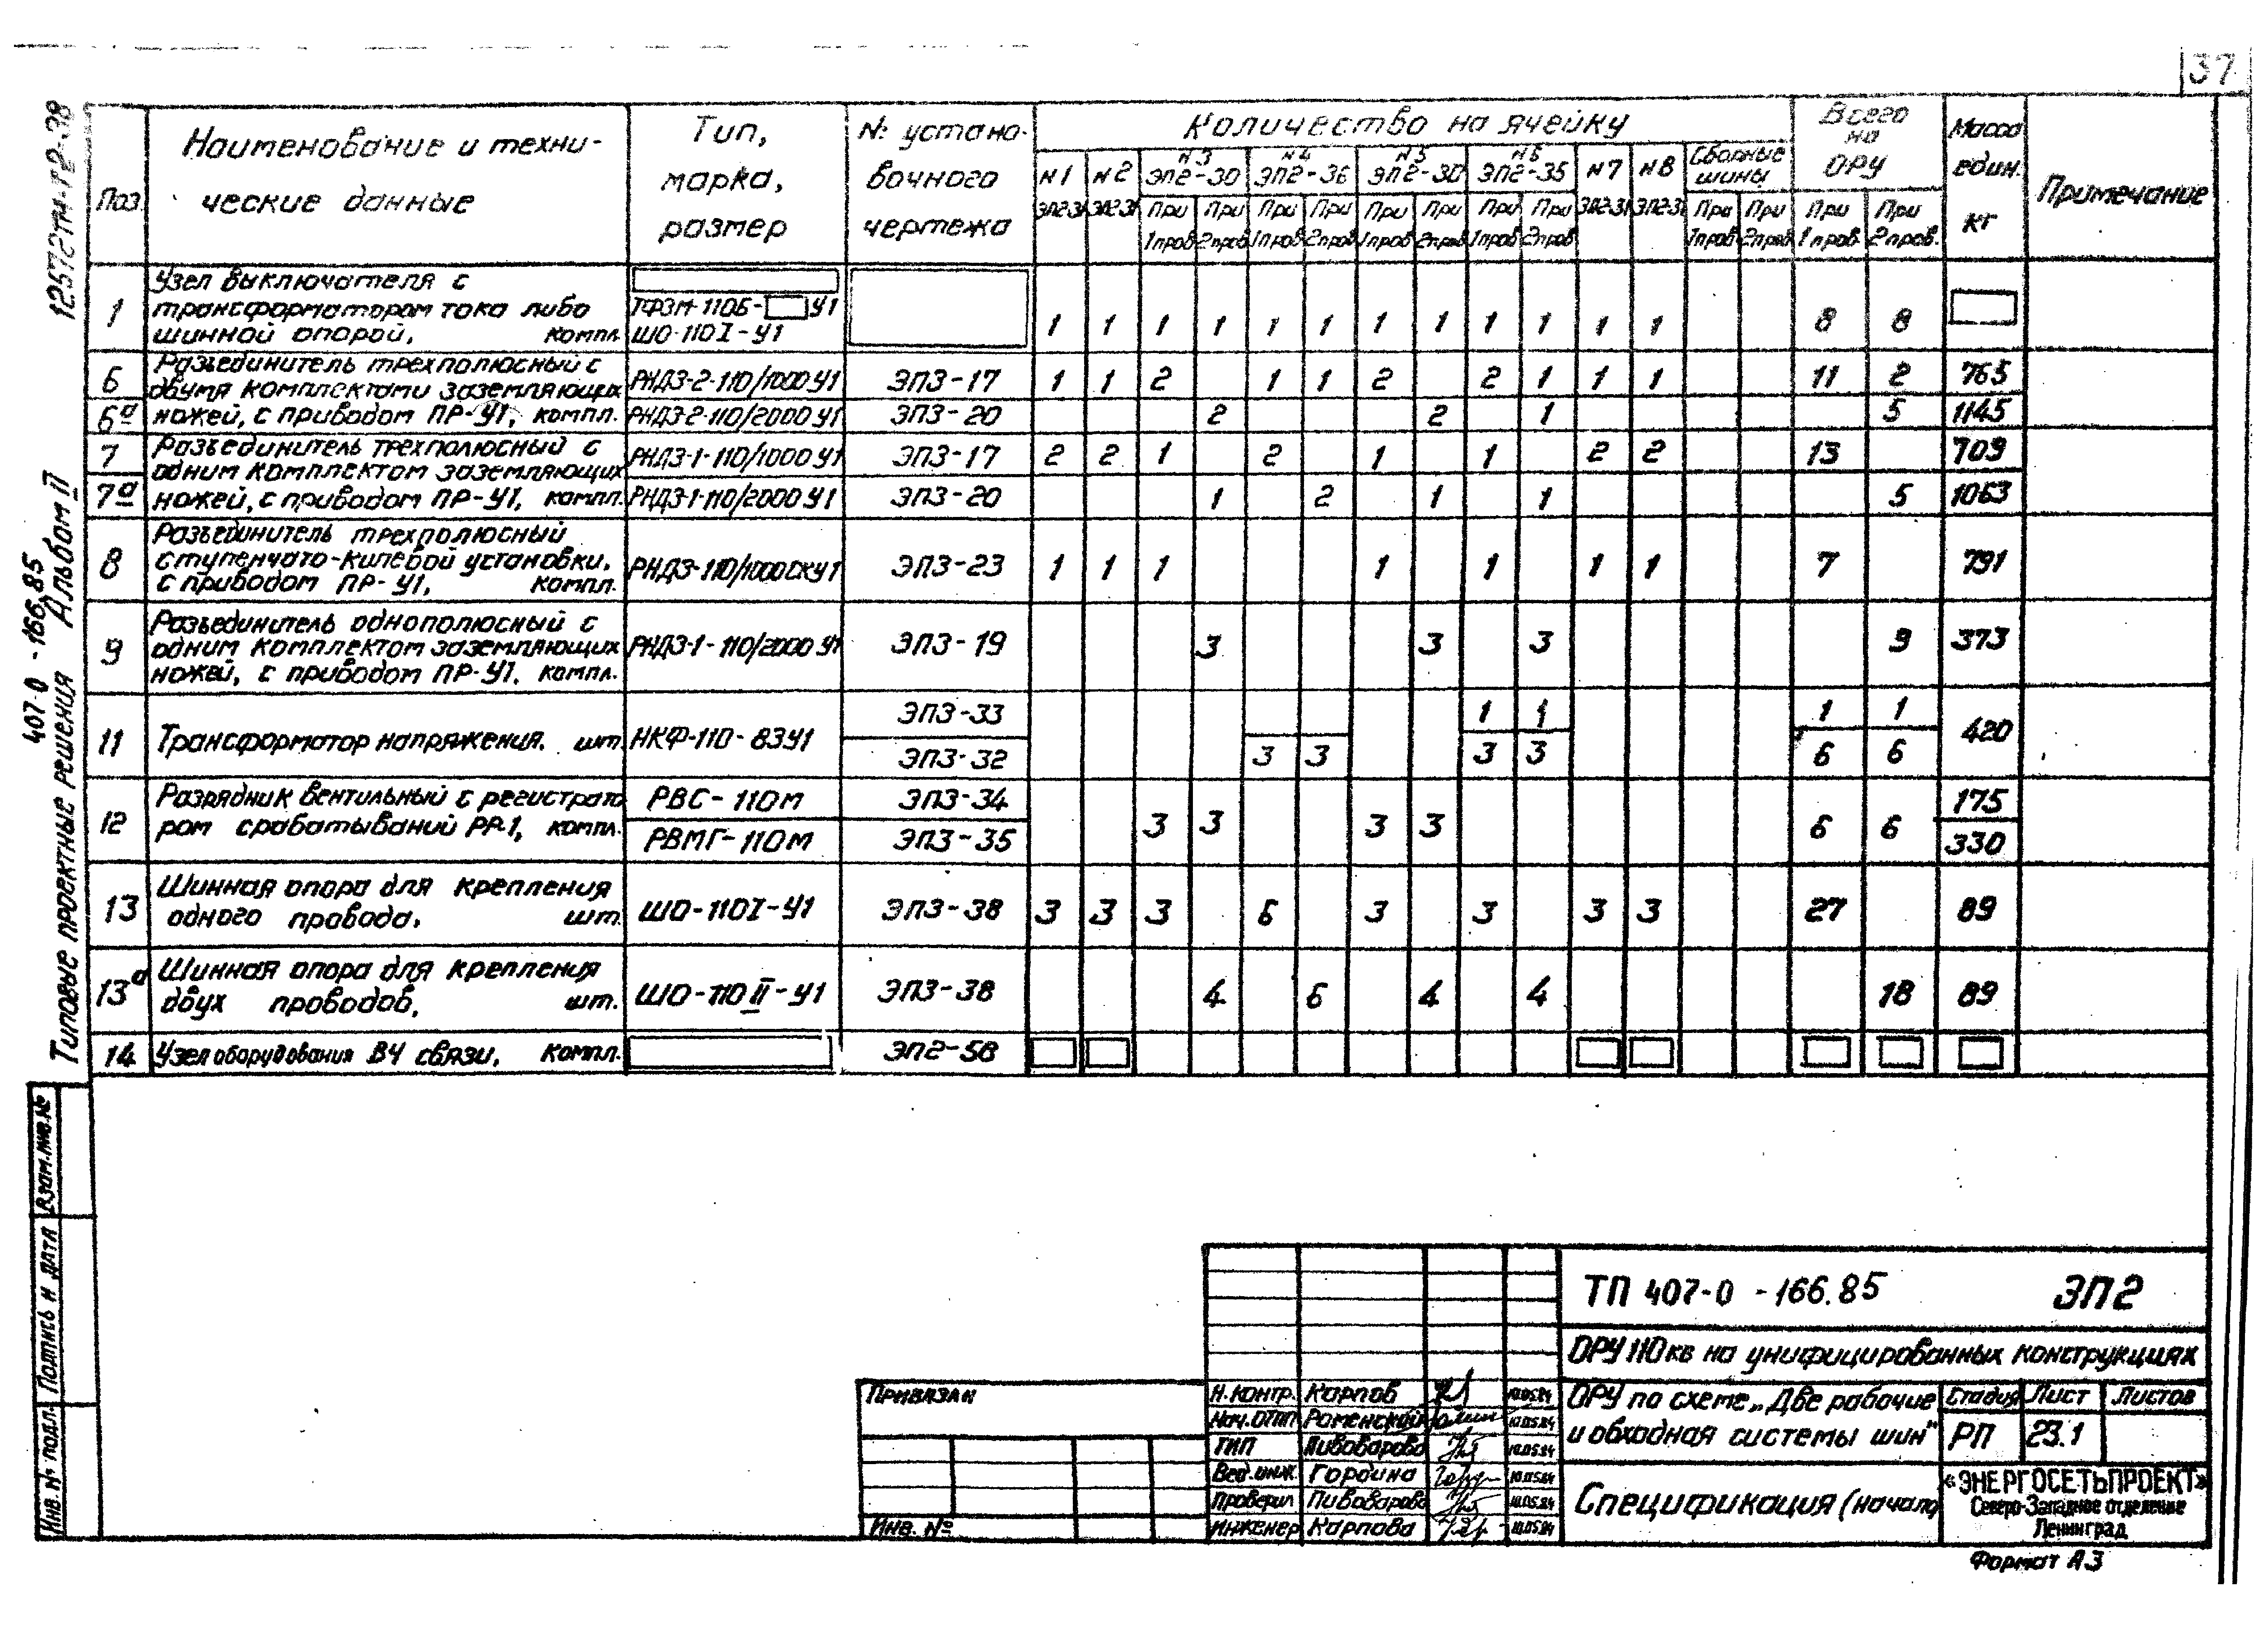 37
12572тм-т2-38
407-0-166.85
Типовые проектные решения Альбом II
Поз.
Наименование и техни-
ческие данные
Тип,
марка,
размер
№ устано-
вочного
чертежа
Количество на ячейку
N1 N2 N3 N4 N5 N6 N7 N8 Сборные шины
ЭП2-30 ЭП2-36 ЭП2-30 ЭП2-35
При 1 пров При 2 пров. При 1 пров При 2 пров При 1 пров При 2 пров При 1 пров При 2 пров При 1 пров При 2 пров
Всего
на
ОРУ
При 1 пров При 2 пров.
Масса
един.
кг
Примечание
1 Узел выключателя с
трансформатором тока либо ТФЗМ-110Б- У1
шинной опорой, компл. ШО-110I-У1 1 1 1 1 1 1 1 1 1 1 1 1 8 8
6 Разъединитель трехполюсный с
двумя комплектами заземляющих РНДЗ-2-110/1000 У1 ЭПЗ-17 1 1 2 1 1 2 2 1 1 1 11 2 765
6а ножей, с приводом ПР-У1, компл. РНДЗ-2-110/2000 У1 ЭПЗ-20 2 2 1 5 1145
7 Разъединитель трехполюсный с
одним комплектом заземляющих РНДЗ-1-110/1000 У1 ЭПЗ-17 2 2 1 2 1 1 2 2 13 709
7а ножей, с приводом ПР-У1, компл. РНДЗ-1-110/2000 У1 ЭПЗ-20 1 2 1 1 5 1063
8 Разъединитель трехполюсный
ступенчато-килевой установки, РНДЗ-110/1000СКУ1 ЭПЗ-23 1 1 1 1 1 1 1 7 791
с приводом ПР-У1, компл.
9 Разъединитель однополюсный с
одним комплектом заземляющих РНДЗ-1-110/2000 У1 ЭПЗ-19 3 3 3 9 373
ножей, с приводом ПР-У1, компл.
ЭПЗ-33 1 1 1 1
11 Трансформатор напряжения, шт. НКФ-110-83У1 420
ЭПЗ-32 3 3 3 3 6 6
12 Разрядник вентильный с регистрато РВС-110м ЭПЗ-34 175
ром срабатываний РР-1, компл. 3 3 3 3 6 6
РВМГ-110м ЭПЗ-35 330
13 Шинная опора для крепления
одного провода, шт. ШО-110I-У1 ЭПЗ-38 3 3 3 6 3 3 3 3 27 89
13а Шинная опора для крепления
двух проводов, шт. ШО-110II-У1 ЭПЗ-38 4 6 4 4 18 89
14 Узел оборудования ВЧ связи, компл. ЭП2-58
Взам.инв.№
Подпись и дата
Инв. № подл.
ТП 407-0-166.85 ЭП2
ОРУ 110кв на унифицированных конструкциях
Привязан
Инв. №
Н.контр. Карпов 10.05.84
Нач.ОТПП Роменский 10.05.84
ГИП Пивоварова 10.05.84
Вед.инж. Гордина 10.05.84
Проверил Пивоварова 10.05.84
Инженер Карпова 10.05.84
ОРУ по схеме „Две рабочие
и обходная системы шин"
Стадия Лист Листов
РП 23.1
Спецификация (начало)
«ЭНЕРГОСЕТЬПРОЕКТ»
Северо-Западное отделение
Ленинград
Формат А3